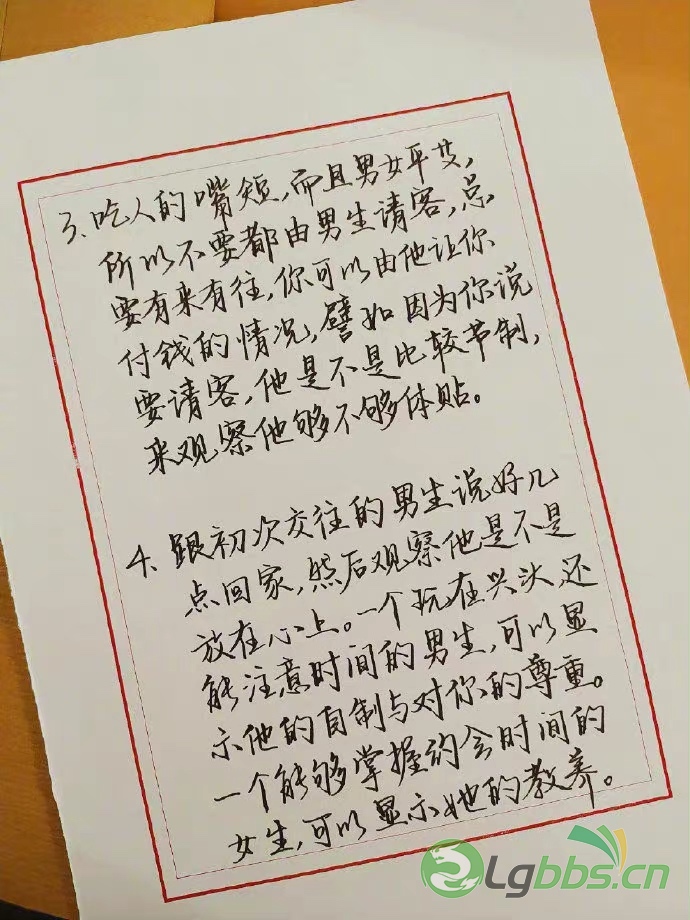 3、吃人的嘴短,而且男女平等,
所以不要都由男生请客,总
要有来有往,你可以由他让你
付钱的情况,譬如因为你说
要请客,他是不是比较节制,
来观察他够不够体贴。
4、跟初次交往的男生说好几
点回家,然后观察他是不是
放在心上。一个玩在兴头,还
能注意时间的男生,可以显
示他的自制与对你的尊重。
一个能够掌握约会时间的
女生,可以显示她的教养。
Lgbbs.cn